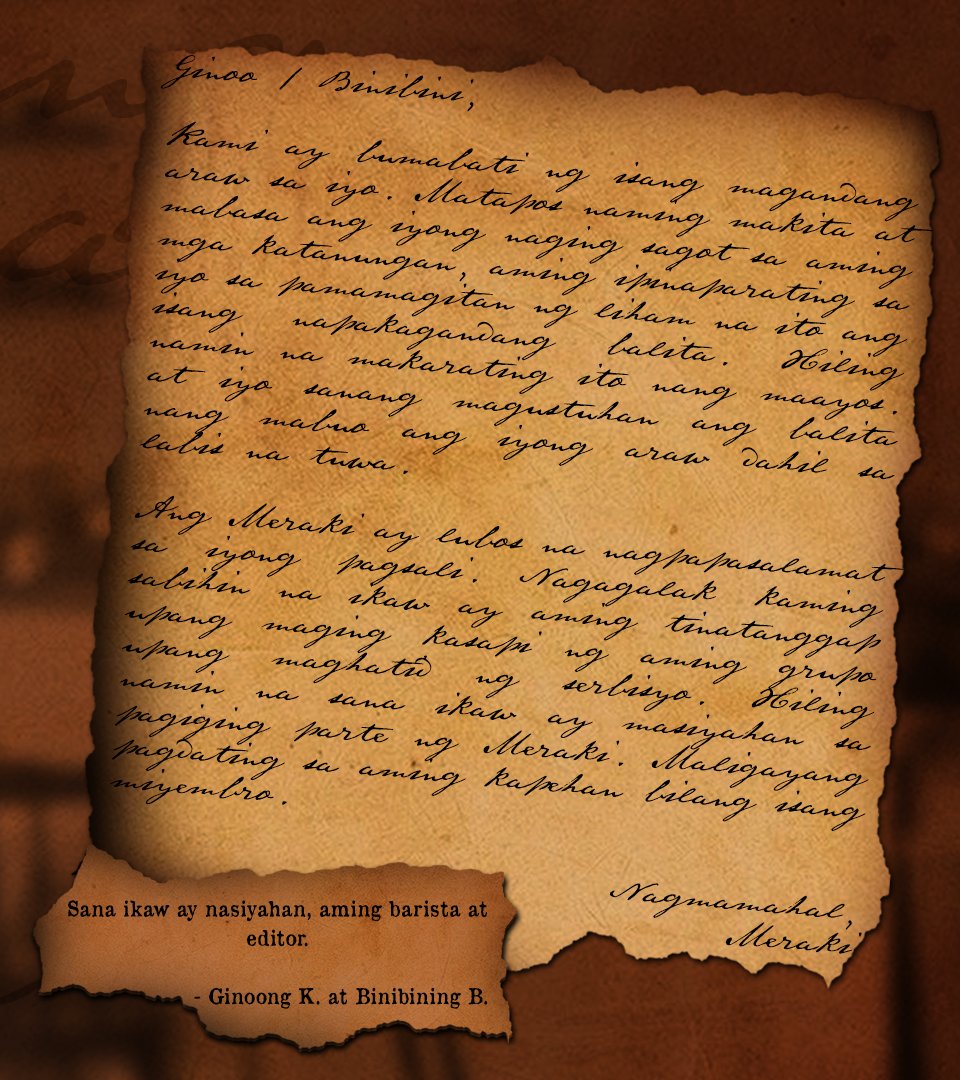 Ginoo / Binibini,
Kami ay bumabati ng isang magandang
araw sa iyo. Matapos naming makita at
mabasa ang iyong naging sagot sa aming
mga katanungan, aming ipinaparating sa
iyo sa pamamagitan ng liham na ito ang
isang napakagandang balita. Hiling
namin na makarating ito nang maayos.
at iyo sanang magustuhan ang balita
nang mabuo ang iyong araw dahil sa
labis na tuwa.
Ang Meraki ay lubos na nagpapasalamat
sa iyong pagsali. Nagagalak kaming
sabihin na ikaw ay aming tinatanggap
upang maging kasapi ng aming grupo
upang maghatid ng serbisyo. Hiling
namin na sana ikaw ay masiyahan sa
pagiging parte ng Meraki. Maligayang
pagdating sa aming kapehan bilang isang
miyembro.
Nagmamahal,
Meraki
Sana ikaw ay nasiyahan, aming barista at
editor.
- Ginoong K. at Binibining B.